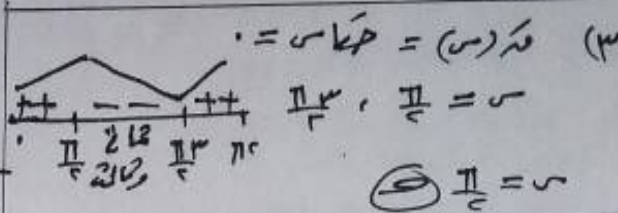 ٣) قَ(س) = جتا س = ٠
س = π/٢ ، ٣π/٢
++ −− ++
٠ π/٢ ٣π/٢ ٢π
س = π/٢